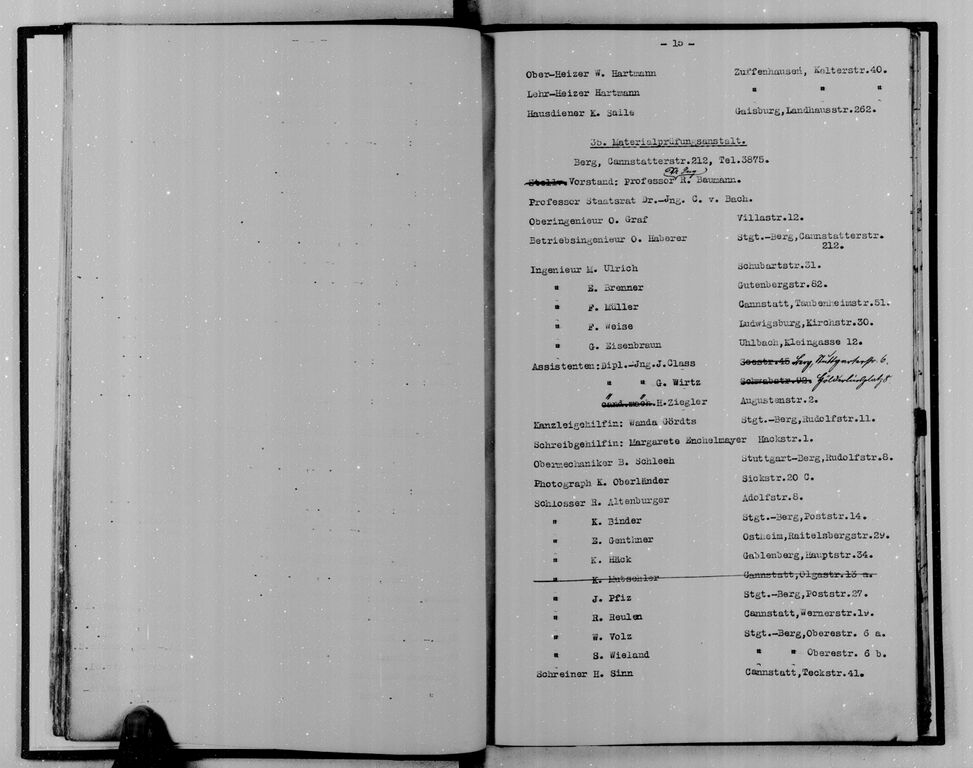 - 15 -
Ober-Heizer W. Hartmann Zuffenhausen, Kelterstr.40.
Lehr-Heizer Hartmann " " "
Hausdiener K. Saile Gaisburg,Landhausstr.262.
35. Materialprüfungsanstalt.
Berg, Cannstatterstr.212, Tel.3875.
Dr Ing
Stellv. Vorstand: Professor R. Baumann.
Professor Staatsrat Dr.-Jng. C. v. Bach.
Oberingenieur O. Graf Villastr.12.
Betriebsingenieur O. Haberer Stgt.-Berg,Cannstatterstr.
212.
Ingenieur M. Ulrich Schubartstr.31.
" E. Brenner Gutenbergstr.82.
" F. Müller Cannstatt,Taubenheimstr.51.
" F. Weise Ludwigsburg,Kirchstr.30.
" G. Eisenbraun Uhlbach,Kleingasse 12.
Assistenten:Dipl.-Jng.J.Class Seestr.45 Berg, Stuttgarterstr. 6.
" " G. Wirtz Schwabstr.99. Hölderlinplatz 8
" "
cand.mach.H.Ziegler Augustenstr.2.
Kanzleigehilfin: Wanda Gördts Stgt.-Berg,Rudolfstr.11.
Schreibgehilfin: Margarete Enchelmayer Hackstr.1.
Obermechaniker B. Schleeh Stuttgart-Berg,Rudolfstr.8.
Photograph K. Oberländer Sickstr.20 C.
Schlosser R. Altenburger Adolfstr.8.
" K. Binder Stgt.-Berg,Poststr.14.
" E. Genthner Ostheim,Raitelsbergstr.29.
" K. Häck Gablenberg,Hauptstr.34.
" K. Mutschler Cannstatt,Olgastr.13 a.
" J. Pfiz Stgt.-Berg,Poststr.27.
" R. Reulen Cannstatt,Wernerstr.19.
" W. Volz Stgt.-Berg,Oberestr. 6 a.
" S. Wieland " " Oberestr. 6 b.
Schreiner H. Sinn Cannstatt,Teckstr.41.